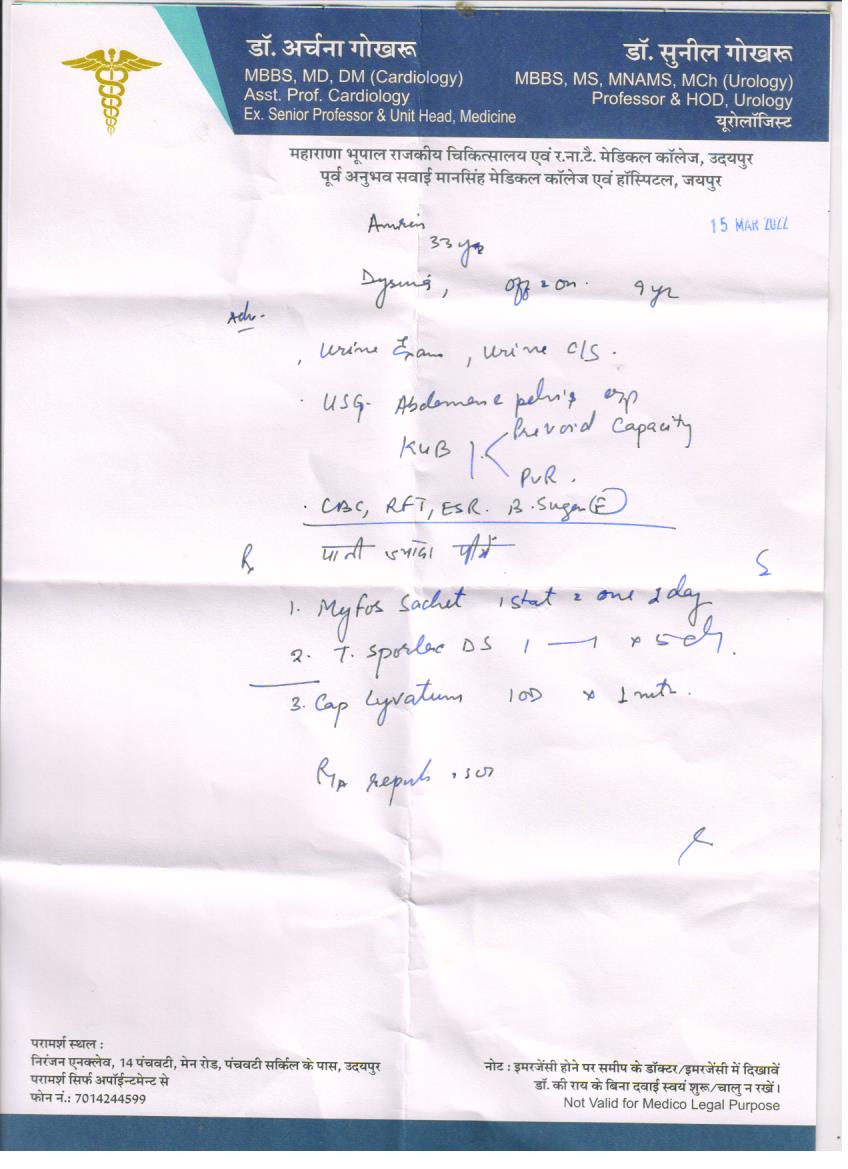 डॉ. अर्चना गोखरू
MBBS, MD, DM (Cardiology)
Asst. Prof. Cardiology
Ex. Senior Professor & Unit Head, Medicine
डॉ. सुनील गोखरू
MBBS, MS, MNAMS, MCh (Urology)
Professor & HOD, Urology
यूरोलॉजिस्ट
महाराणा भूपाल राजकीय चिकित्सालय एवं र.ना.टै. मेडिकल कॉलेज, उदयपुर
पूर्व अनुभव सवाई मानसिंह मेडिकल कॉलेज एवं हॉस्पिटल, जयपुर
15 MAR 2022
33 yr
Dysuria, off on. 9 yr
Adv.
Urine Exam, Urine C/S.
USG- Abdomen pelvis
KUB Prevoid Capacity
PVR.
CBC, RFT, ESR. B. Sugar (F)
Rx पानी ज्यादा पीयें
1. Myfos Sachet 1 stat one day
2. T. Sporlac DS 1 — 1 x 5 d
3. Cap Lyvatum 1 OD x 1 mth.
परामर्श स्थल :
निरंजन एनक्लेव, 14 पंचवटी, मेन रोड, पंचवटी सर्किल के पास, उदयपुर
परामर्श सिर्फ अपॉईन्टमेन्ट से
फोन नं.: 7014244599
नोट : इमरजेंसी होने पर समीप के डॉक्टर/इमरजेंसी में दिखावें
डॉ. की राय के बिना दवाई स्वयं शुरू/चालु न रखें।
Not Valid for Medico Legal Purpose